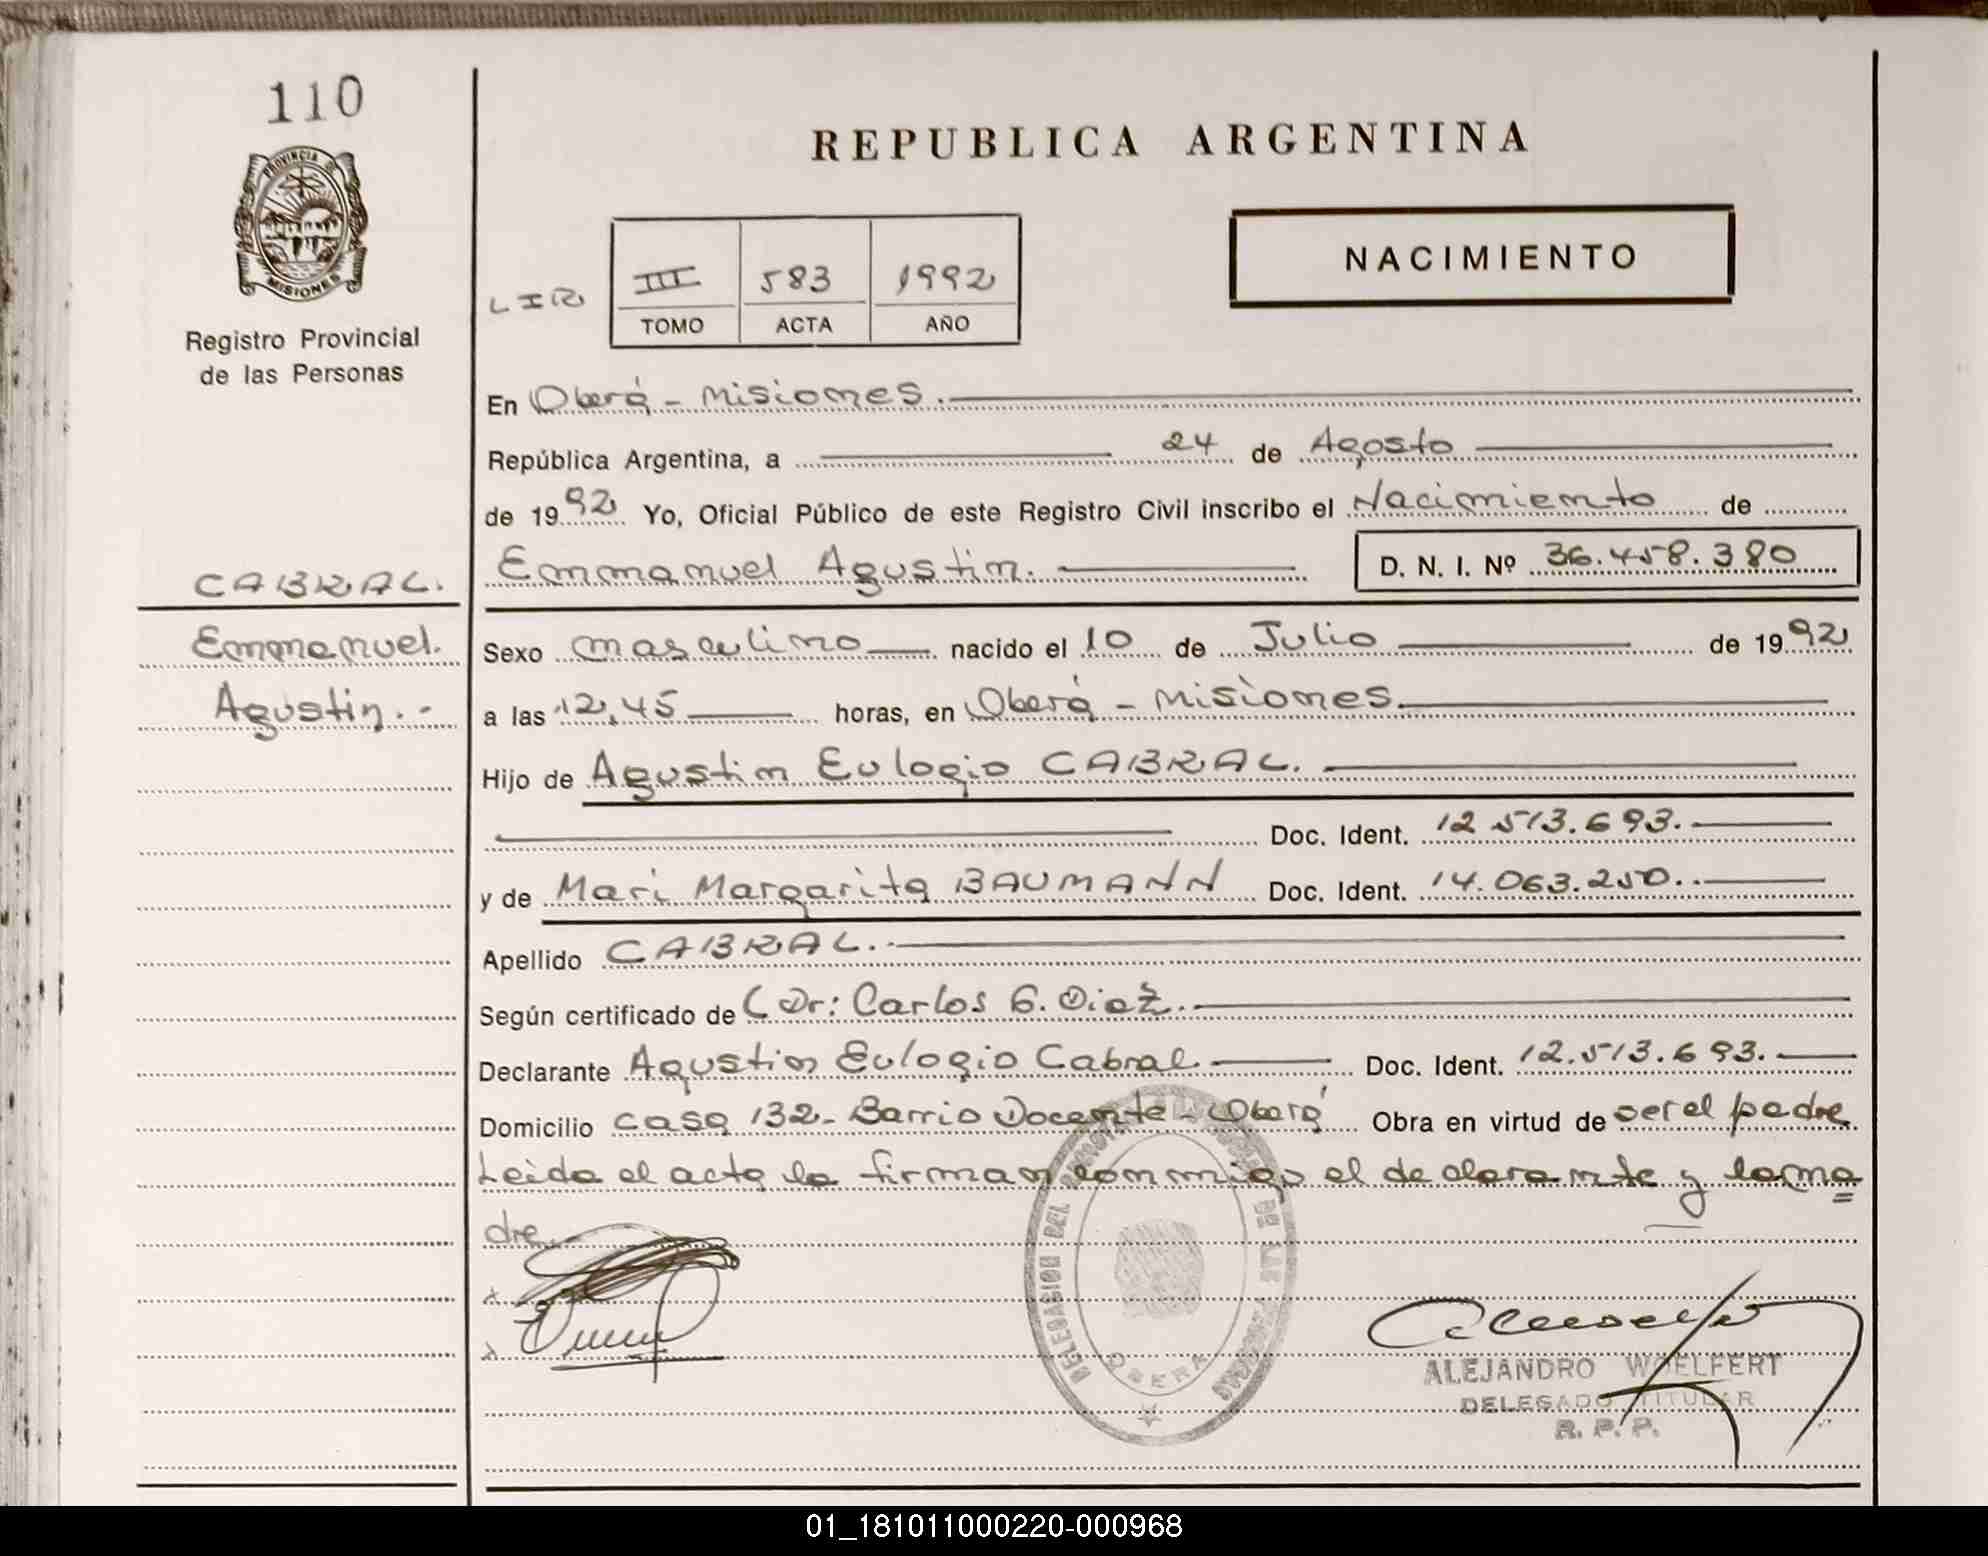 110
PROVINCIA DE
MISIONES
Registro Provincial
de las Personas
REPUBLICA ARGENTINA
NACIMIENTO
LIR
III 583 1992
TOMO ACTA AÑO
En Oberá - Misiones.
República Argentina, a 24 de Agosto
de 1992 Yo, Oficial Público de este Registro Civil inscribo el Nacimiento de
Emmanuel Agustin. D. N. I. Nº 36.458.380
CABRAL.
Emmanuel.
Agustin.-
Sexo masculino nacido el 10 de Julio de 1992
a las 12,45 horas, en Oberá - Misiones.
Hijo de Agustin Eulogio CABRAL.
Doc. Ident. 12.513.693.
y de Mari Margarita BAUMANN Doc. Ident. 14.063.250.
Apellido CABRAL.
Según certificado de Dr: Carlos G. Diaz.
Declarante Agustin Eulogio Cabral Doc. Ident. 12.513.693.
Domicilio casa 132- Barrio Docente - Oberá Obra en virtud de ser el padre
Leida el acta la firman conmigo el declarante y la ma=
dre.-
DELEGACION DEL DE LAS PERSONAS
OBERA
ALEJANDRO WOELFERT
DELEGADO TITULAR
R. P. P.
01_181011000220-000968